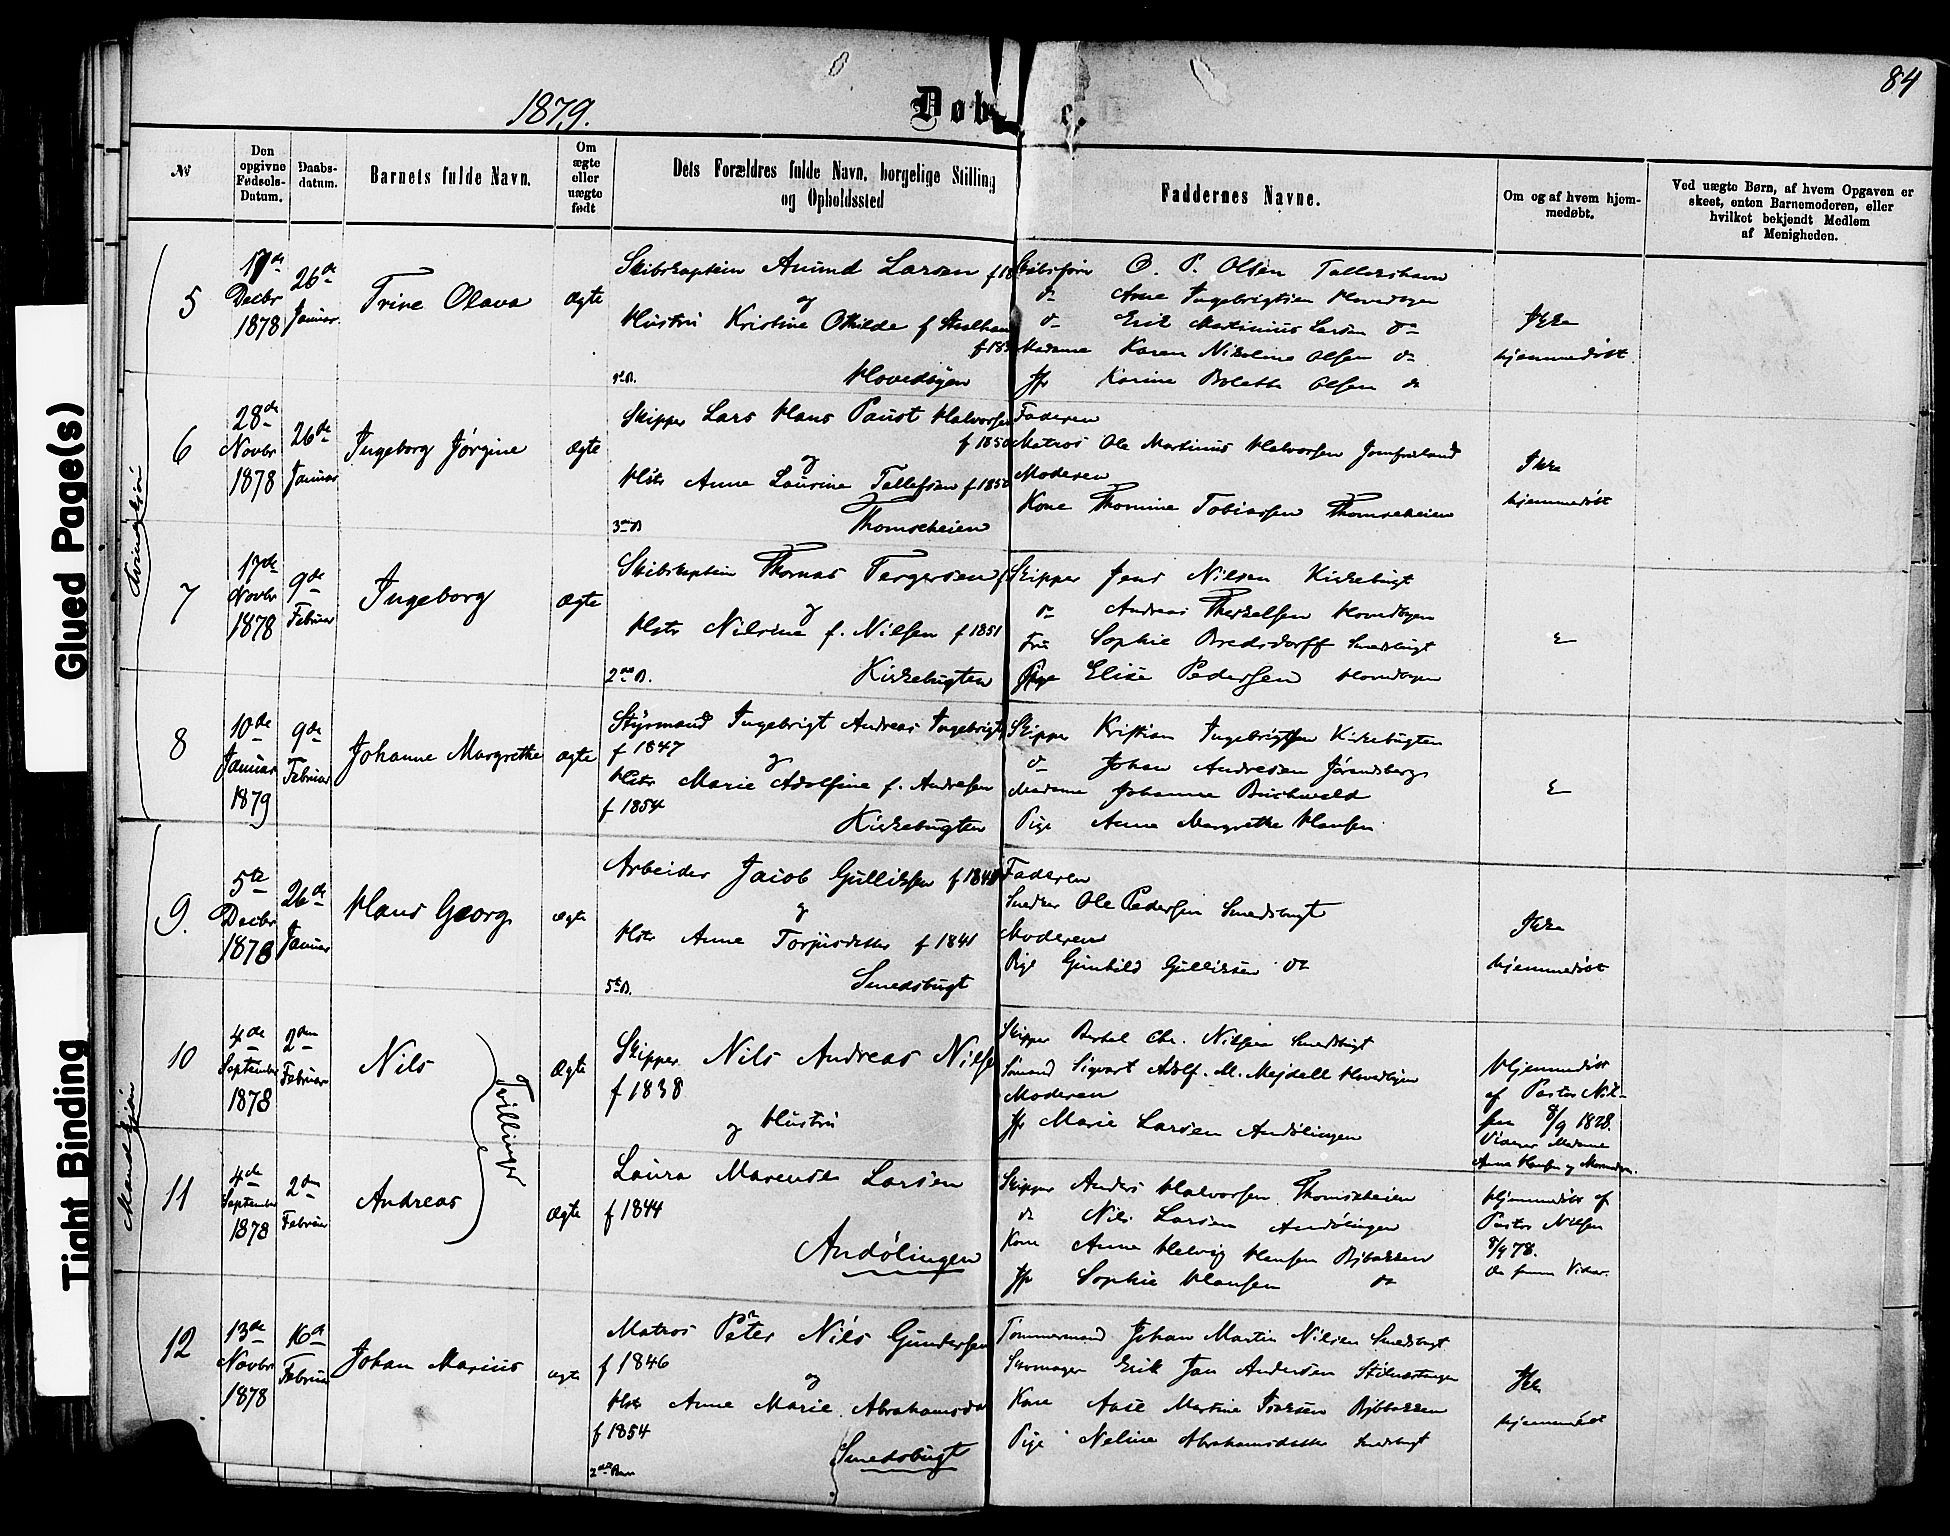 84
1879.
Døbte.
№
Den opgivne Fødsels-Datum.
Daabs-datum.
Barnets fulde Navn.
Om ægte eller uægte født
Dets Forældres fulde Navn, borgelige Stilling
og Opholdssted
Faddernes Navne.
Om og af hvem hjem-
medøbt.
Ved uægte Børn, af hvem Opgaven er
skeet, enten Barnemoderen, eller
hvilket bekjendt Medlem
af Menigheden.
5
17de
Decbr
1878
26de
Januar
Trine Olava
Ægte
Skibskaptein Amund Larsen f 18
og
Hustru Kristine Othilde f
f 18
Hovedbyen
Skibsfører O. P. Olsen
do Arne Ingebrigtsen Hovedbyen
do Erik Martinius Larsen do
Madame Karen Nikoline Olsen do
Jfr Karine Bolette Olsen do
Ikke
hjemmedøbt
6
28de
Novbr
1878
26de
Januar
Ingeborg Jørgine
Ægte
Skipper Lars Hans Paust Halvorsen
f 1850
og
Hstr Anne Laurine Tollefsen f 185
3die B
Thomseheien
Faderen
Matros Ole Martinus Halvorsen Jomfruland
Moderen
Kone Thomine Tobiassen Thomseheien
Ikke
hjemmedøbt
7
17de
Novbr
1878
9de
Februar
Ingeborg
Ægte
Skibskaptein Thomas Tergersen f
og
Hstr Nilsine f. Nilsen f 1851
2det B.
Kirkebugten
Skipper Jens Nilsen Kirkebugt
do Andreas Therkelsen Hovedbyen
Fru Sophie Bredsdorff Smedsbugt
Pige Elise Pedersen Hovedbyen
8
10de
Januar
1879
9de
Februar
Johanne Margrethe
Ægte
Styrmand Ingebrigt Andreas Ingebrigt
f 1847
og
Hstr Marie Adolfine f. Andresen
f 1854
Kirkebugten
Skipper Kristian Ingebrigtsen Kirkebugten
do Johan Andresen
Madame Johanne Buchwald
Pige Anne Margrethe Hansen
9.
5te
Decbr
1878
26de
Januar
Hans Georg
Ægte
Arbeider Jacob Gulliksen f 184
og
Hstr Anne Torjusdatter f 1841
5te B.
Smedsbugt
Faderen
Snedker Ole Pedersen Smedsbugt
Moderen
Pige Gunhild Gulliksen do
Ikke
hjemmedøbt
10
4de
September
1878
2den
Februar
Nils
Tvillinger
Ægte
Skipper Nils Andreas Nilse
f 1838
og Hustru
Skipper Bertel Chr. Nilsen Smedsbugt
Sømand Sigvart Adolf. M. Mejdell Hovedbyen
Moderen
Jfr Marie Larsen Andølingen
Hjemmedøbt
af Pastor Nil-
sen 8/9 1878.
Vidner Madame
Anne Hansen og Moderen.
11
4de
September
1878
2den
Februar
Andreas
Ægte
Laura Marende Larsen
f 1844
Andølingen
Skipper Anders Halvorsen Thomseheien
do Nils Larsen Andølingen
Kone Anne Helvig Hansen
Jfr Sophie Hansen do
Hjemmedøbt af
Pastor Nilsen
8/9 78.
De samme Vidner.
12
13de
Novbr
1878
16de
Februar
Johan Marius
Ægte
Matros Peter Nils Gundersen
f 1846
og
Hstr Anne Marie Abrahamsda
f 1854
2det Barn
Smedsbugt
Tømmermand Johan Martin Nilsen Smedsbugt
Skomager Erik Jan Andersen
Kone Aase Martine Isaksen
Pige Neline Abrahamsdatter Smedsbugt
Ikke
hjemmedøbt
Kvindekjøn
Mandkjøn
Glued Page(s)
Tight Binding